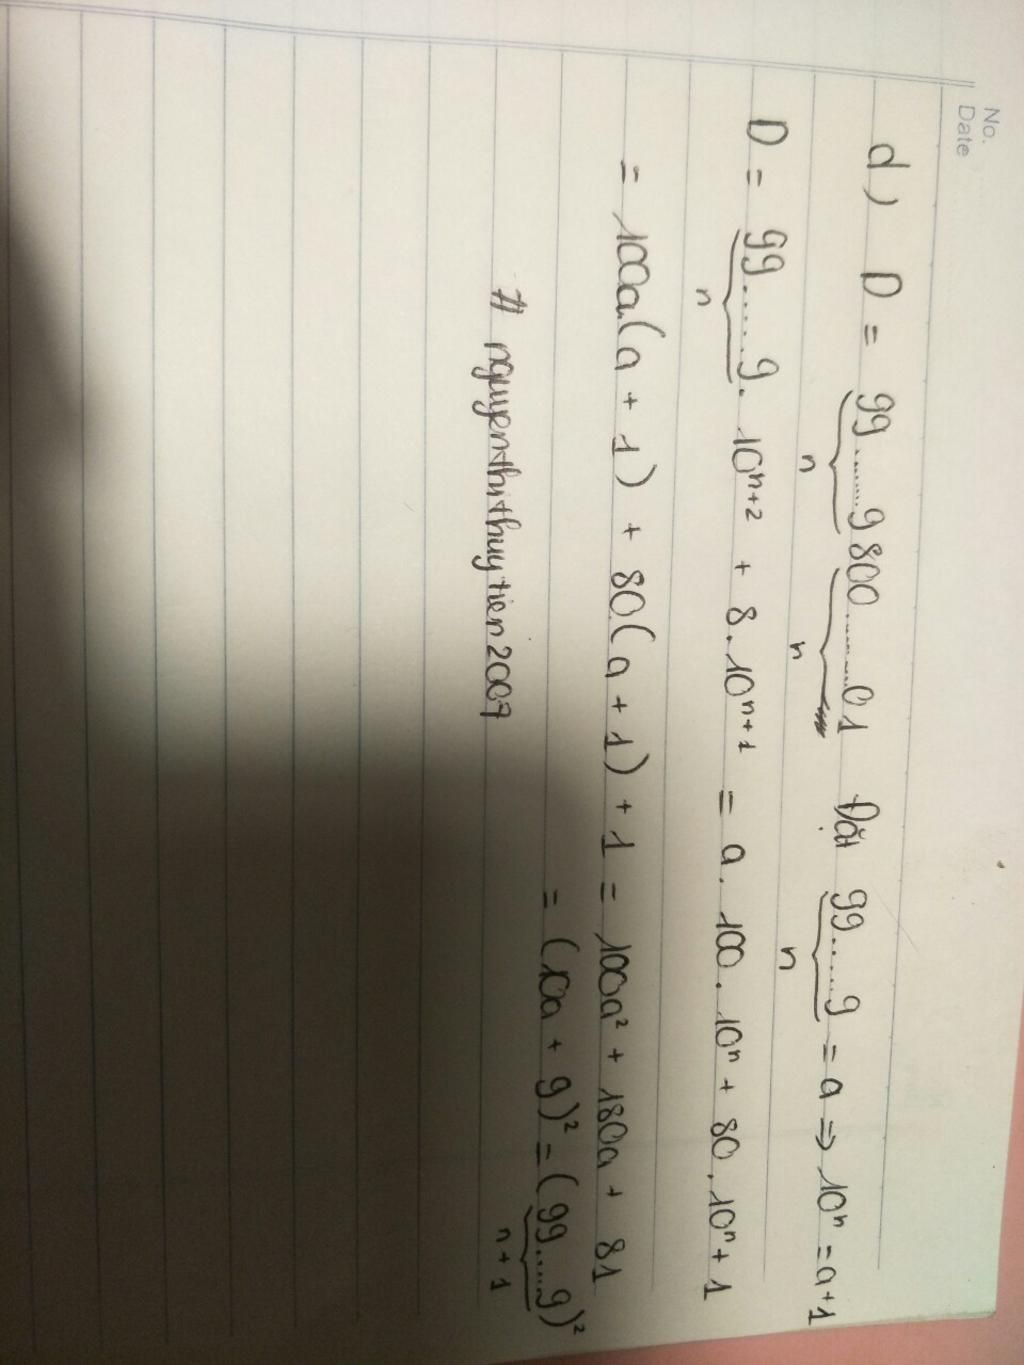 No.
Date
d) D = 99.......9 800........01 Đặt 99......9 = a => 10ⁿ = a+1
n n n
D = 99.......9. 10ⁿ⁺² + 8.10ⁿ⁺¹ = a. 100. 10ⁿ + 80.10ⁿ + 1
n
= 100a.(a + 1) + 80.(a + 1) + 1 = 100a² + 180a + 81
= (10a + 9)² = (99.....9)²
n + 1
# nguyenthithuytien2007